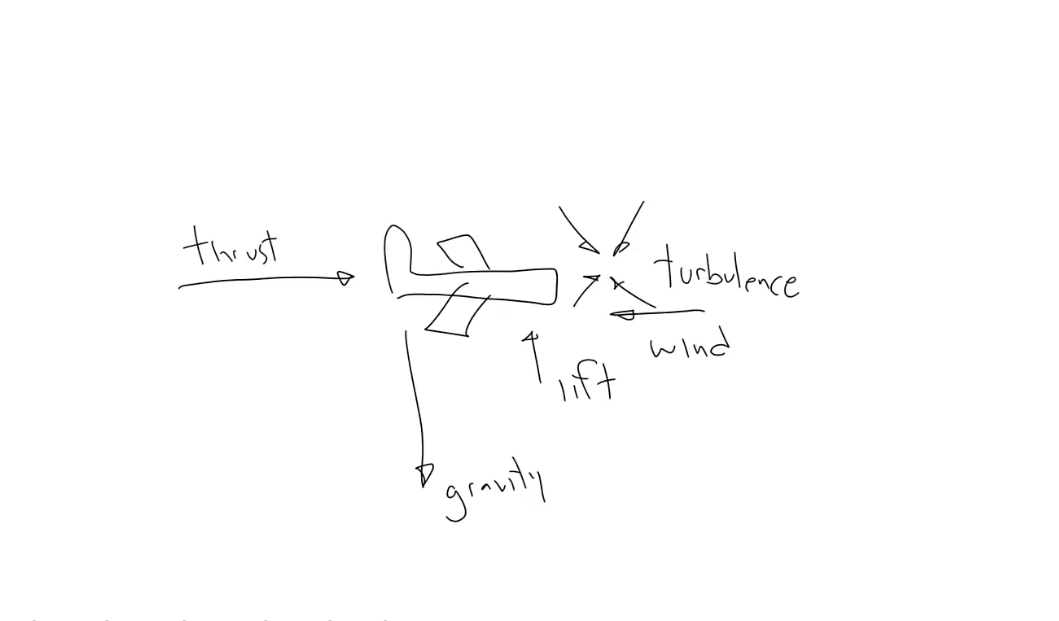 thrust
turbulence
wind
lift
gravity